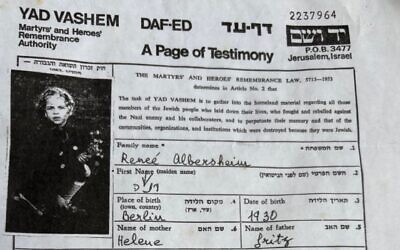 2237964
YAD VASHEM
DAF-ED
דף-עד
יד ושם
Martyrs' and Heroes'
Remembrance
Authority
A Page of Testimony
P.O.B. 3477
Jerusalem, Israel
THE MARTYRS' AND HEROES' REMEMBRANCE LAW, 5713—1953
determines in Article No. 2 that
The task of YAD VASHEM is to gather into the homeland material regarding all those
members of the Jewish people who laid down their lives, who fought and rebelled against
the Nazi enemy and his collaborators, and to perpetuate their memory and that of the
communities, organizations, and institutions which were destroyed because they were Jewish.
Family name
1. שם המשפחה
Reneé Albersheim
First Name (maiden name)
2. השם הפרטי (שם לפני הנישואין)
Place of birth
(town, country)
3. מקום הלידה
(עיר, ארץ)
Date of birth
4. תאריך הלידה
Berlin
1930
Name of mother
5. שם האם
Name of father
6. שם האב
Helene
Fritz